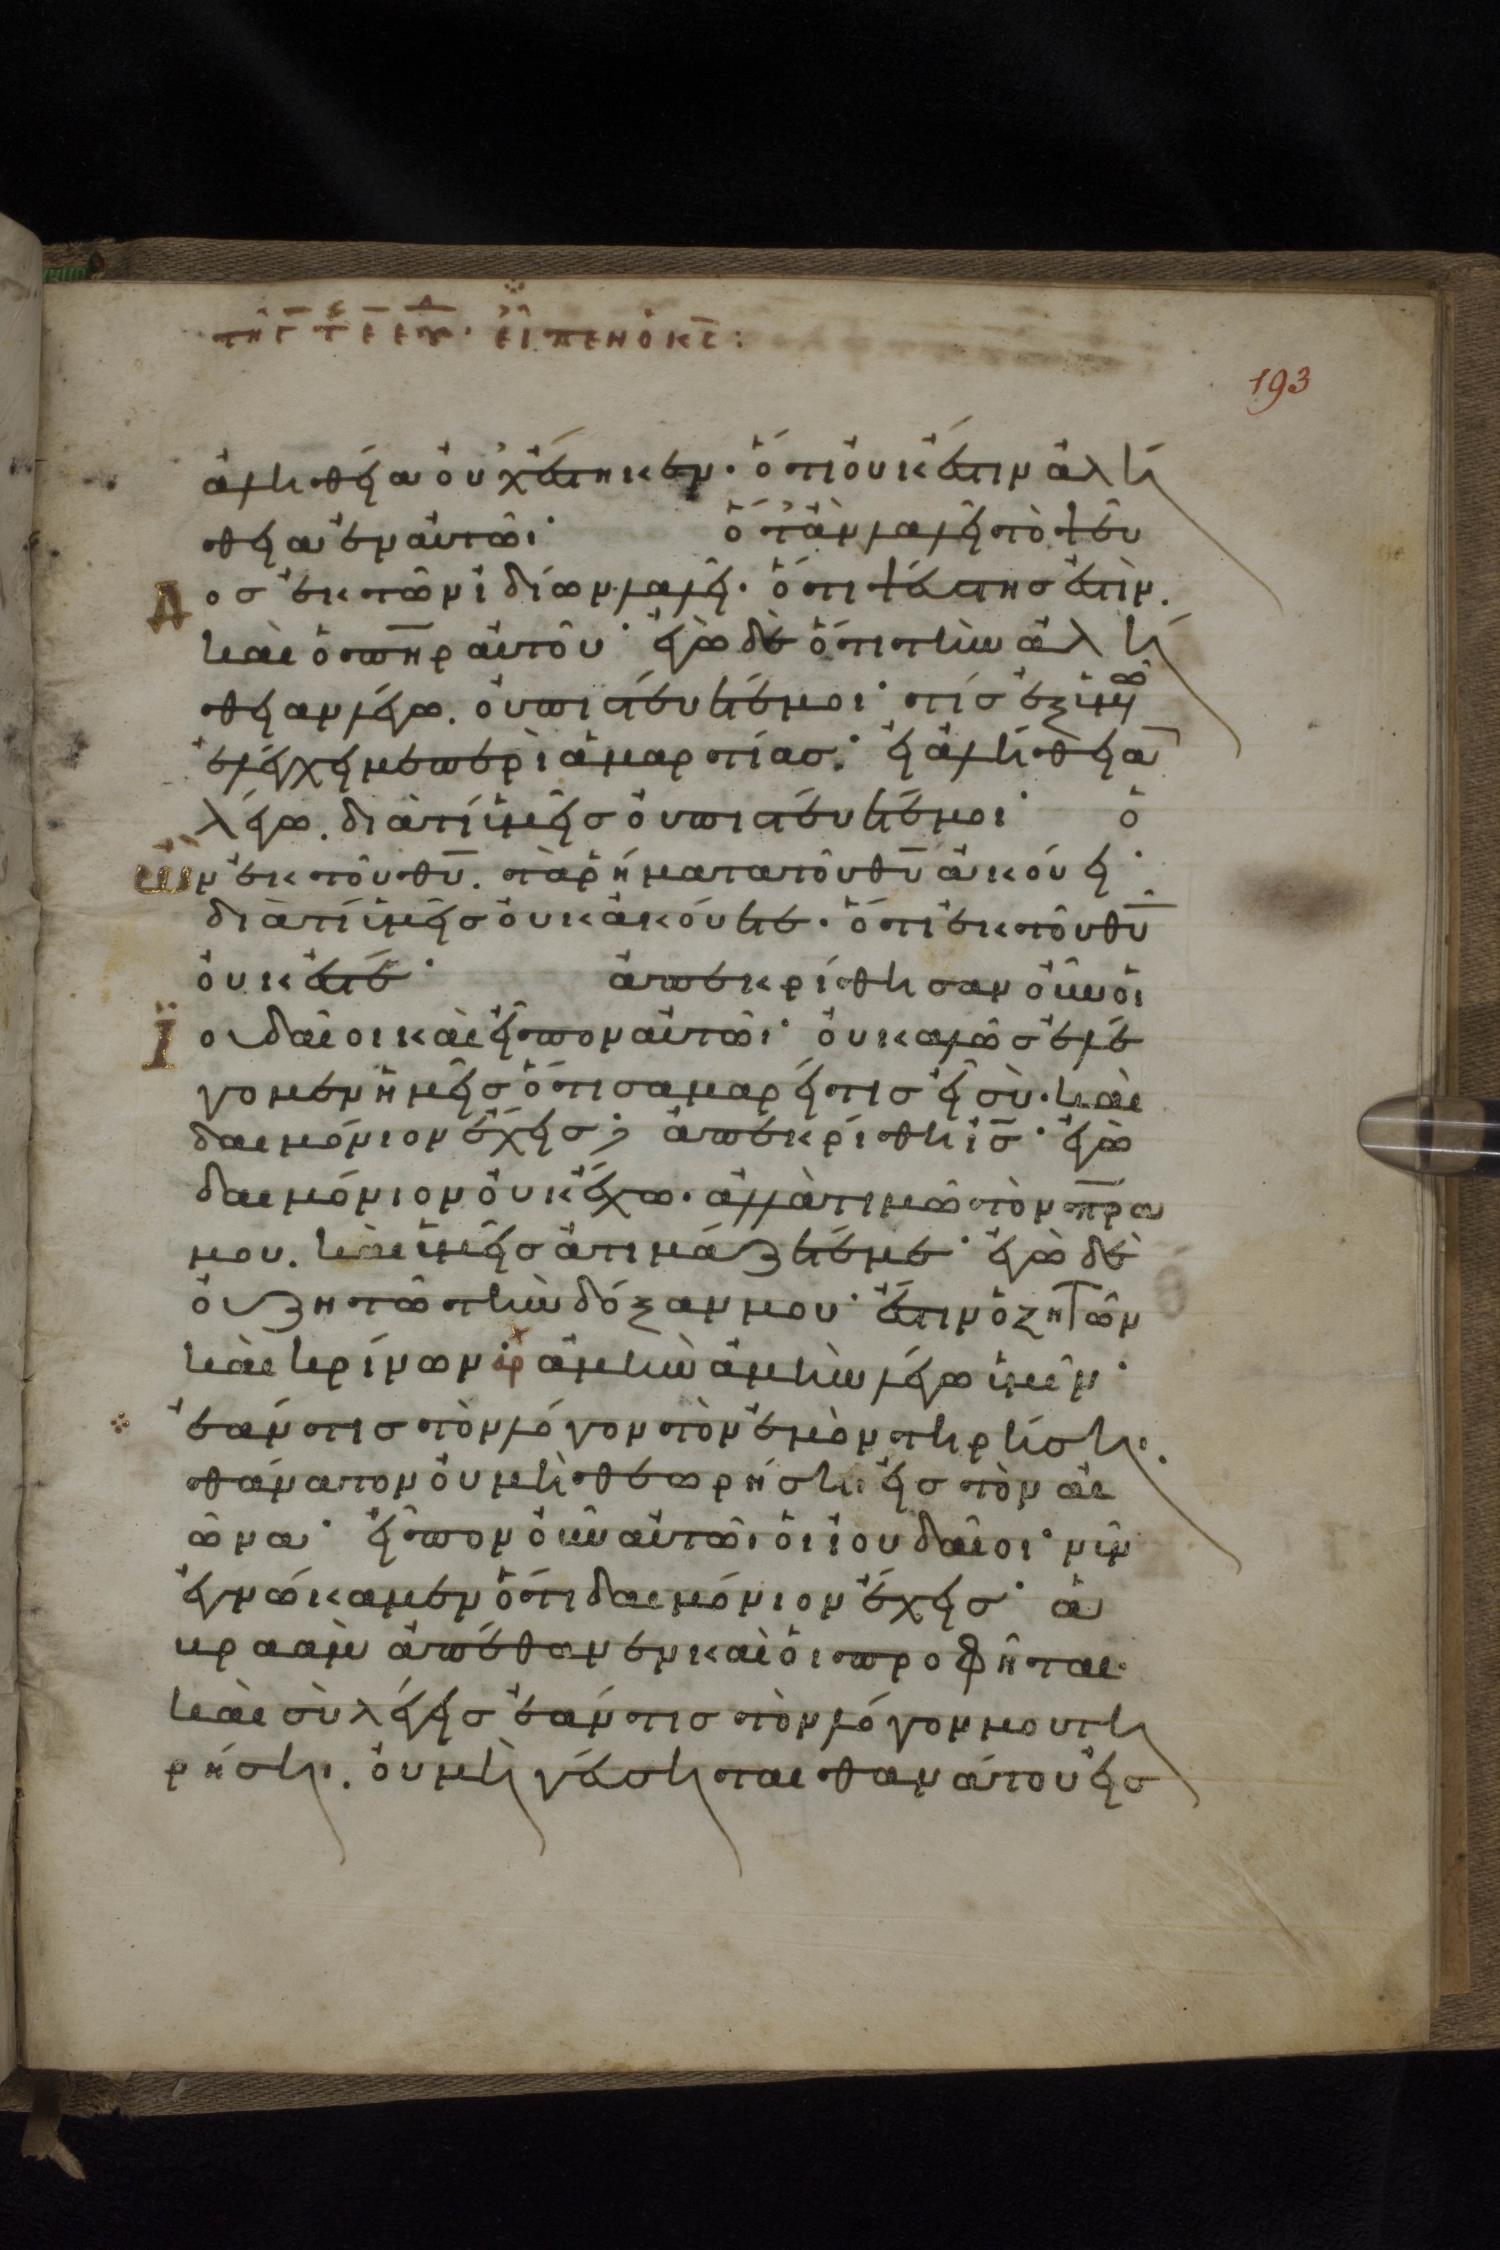 τη ϛ τ ε ε εβδ. εἶπεν ὁ κς:
193
ἀληθεία οὐχ ἕστηκεν· ὅτι οὐκ ἔστιν ἀλή
θεια ἐν αὐτῶι· ὅταν λαλῆ τὸ ψεῦ
δος ἐκ τῶν ἰδίων λαλεῖ· ὅτι ψεύστης ἐστὶν.
καὶ ὁ πηρ αὐτοῦ· ἐγὼ δὲ ὅτι τὴν ἀλή
θειαν λέγω. οὐ πιστεύετέ μοι· τίς ἐξ ὑμῶ
ἐλέγχει με περὶ ἁμαρτίας· εἰ ἀλήθεια
λέγω. διὰ τί ὑμεῖς οὐ πιστεύετέ μοι· ὁ
ὢν ἐκ τοῦ θυ. τὰ ῥήματα τοῦ θυ ἀκούει·
διὰ τί ὑμεῖς οὐκ ἀκούετε· ὅτι ἐκ τοῦ θυ
οὐκ ἐστέ· ἀπεκρίθησαν οὖν οἱ
Ἰουδαῖοι καὶ εἶπον αὐτῶι· οὐ καλῶς ἐλέ
γομεν ἡμεῖς ὅτι σαμαρείτις εἶ σὺ· καὶ
δαιμόνιον ἔχεις; ἀπεκρίθη ις· ἐγὼ
δαιμόνιον οὐκ ἔχω· ἀλλὰ τιμῶ τὸν πρα
μου. καὶ ὑμεῖς ἀτιμάζετέ με· ἐγὼ δὲ
οὐ ζητῶ τὴν δόξαν μου· ἔστιν ὁ ζητῶν
καὶ κρίνων ἀμὴν ἀμὴν λέγω ὑμῖν·
ἐάν τις τὸν λόγον τὸν ἐμὸν τηρήσηι.
θάνατον οὐ μὴ θεωρήσηι εἰς τὸν αἰ
ῶνα· εἶπον οὖν αὐτῶι οἱ ἰουδαῖοι· νῦν
ἐγνώκαμεν ὅτι δαιμόνιον ἔχεις· ἀ
βραὰμ ἀπέθανεν καὶ οἱ προφῆται·
καὶ σὺ λέγεις ἐάν τις τὸν λόγον μου τη
ρήσηι. οὐ μὴ γεύσηται θανάτου εἰς